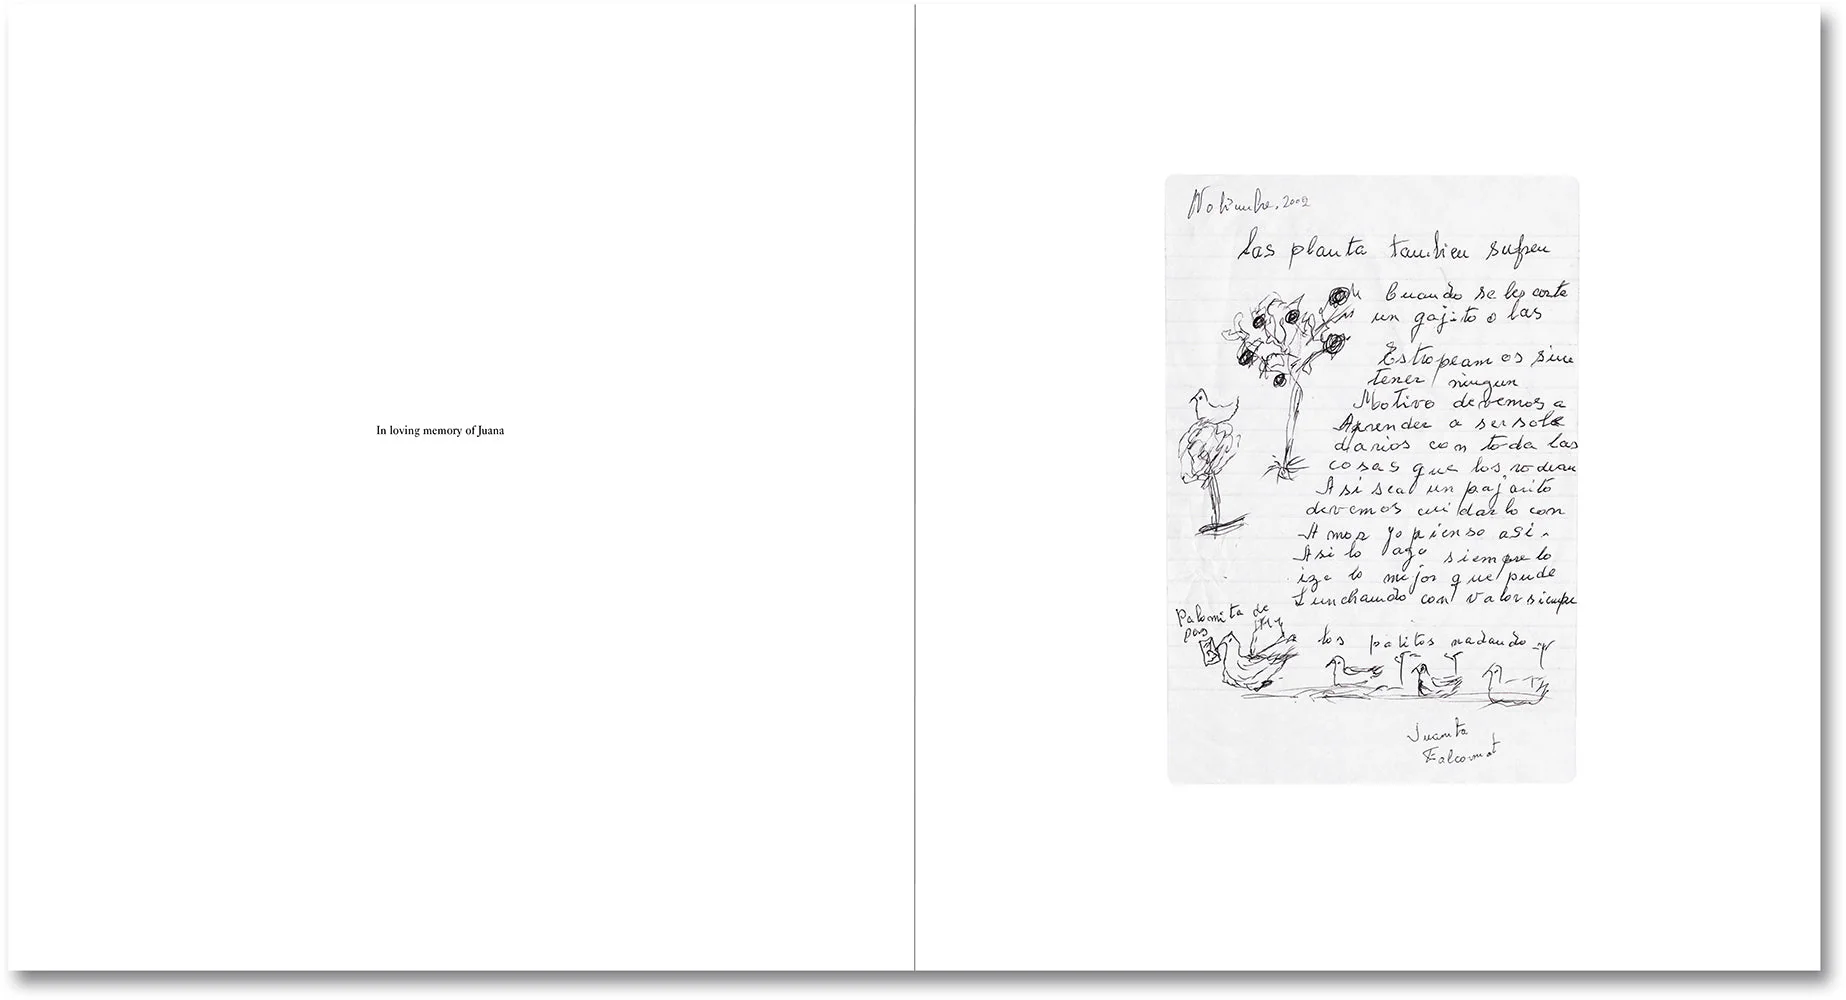 In loving memory of Juana
Nobiembre, 2002
las planta tambien sufren
Cuando se les corte
un gajito o las
Estropeamos sine
tener ningun
Motivo devemos a
Aprender a ser sole
darios con toda las
cosas que los rodean
Asi sea un pajarito
devemos cuidarlo con
Amor yo pienso asi.
Asi lo ago siempre lo
ize lo mejor que pude
Lunchando con valor siempre
Palomita de
pas
los patitos nadando
Juanita